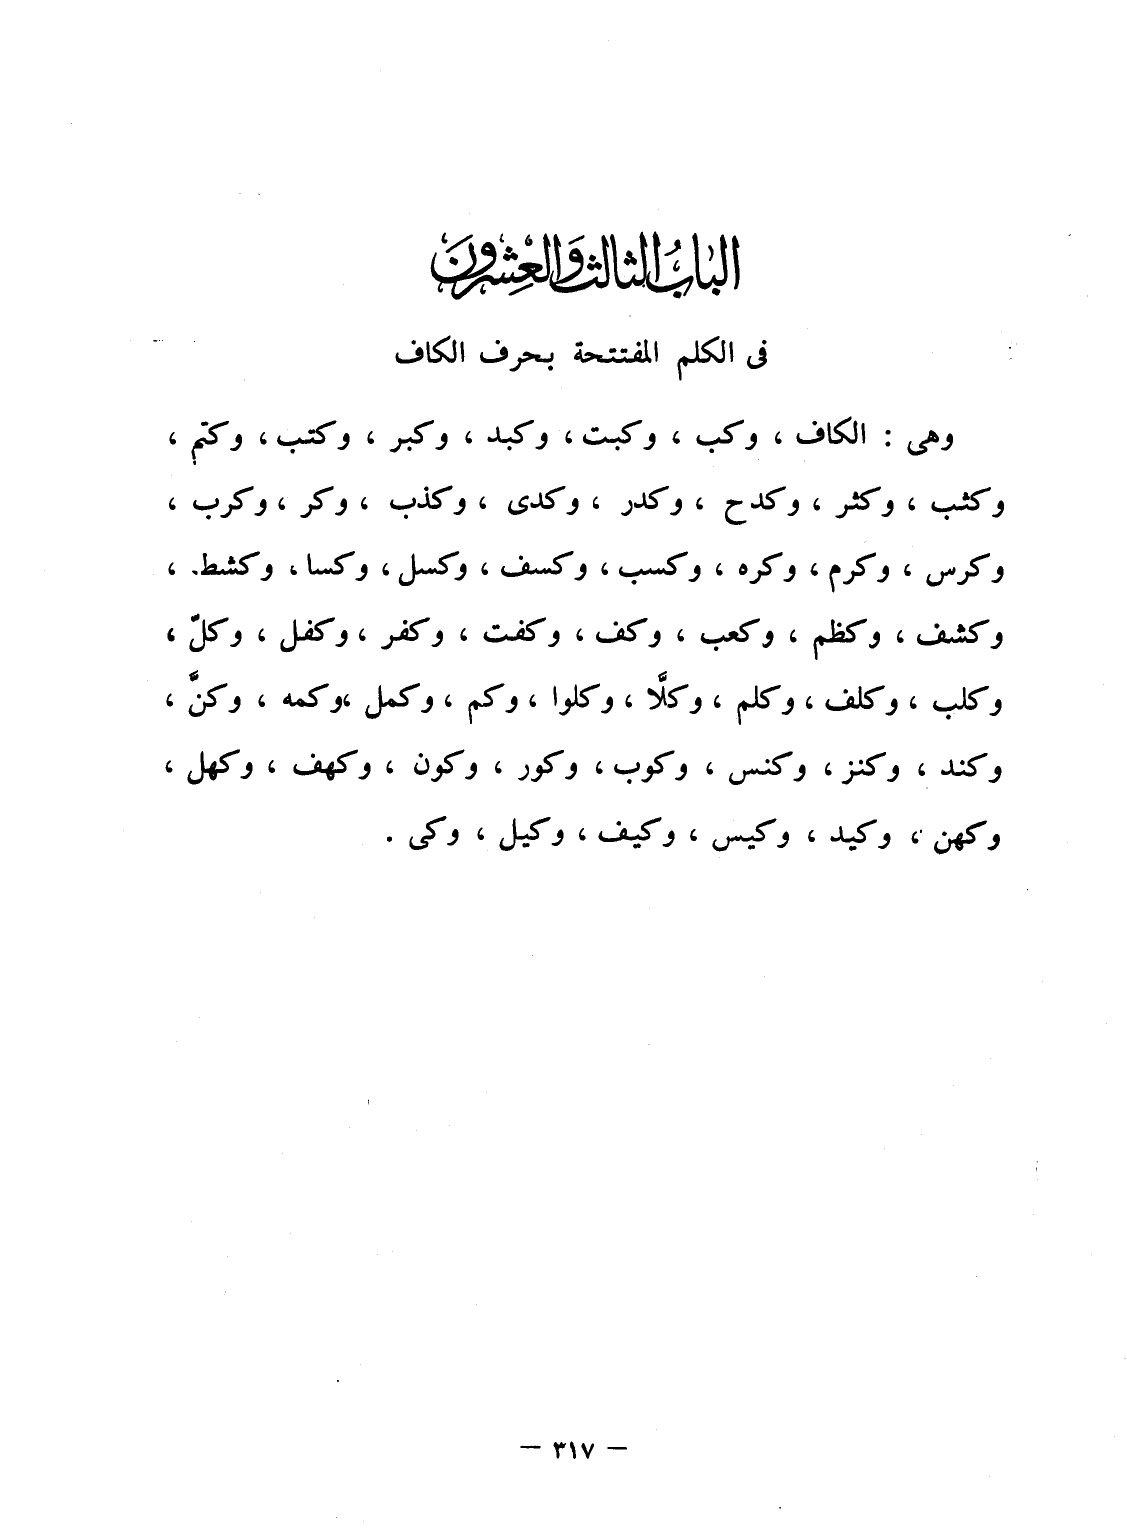 البَابُ الثالث وَالعِشرُونَ
فى الكلم المفتتحة بحرف الكاف
وهى : الكاف ، وكب ، وكبت ، وكبد ، وكبر ، وكتب ، وكتم ،
وكثب ، وكثر ، وكدح ، وكدر ، وكدى ، وكذب ، وكر ، وكرب ،
وكرس ، وكرم ، وكره ، وكسب ، وكسف ، وكسل ، وكسا ، وكشط ،
وكشف ، وكظم ، وكعب ، وكف ، وكفت ، وكفر ، وكفل ، وكلّ ،
وكلب ، وكلف ، وكلم ، وكلَّا ، وكلوا ، وكم ، وكمل ، وكمه ، وكنَّ ،
وكند ، وكنز ، وكنس ، وكوب ، وكور ، وكون ، وكهف ، وكهل ،
وكهن ، وكيد ، وكيس ، وكيف ، وكيل ، وكى .
— ٣١٧ —